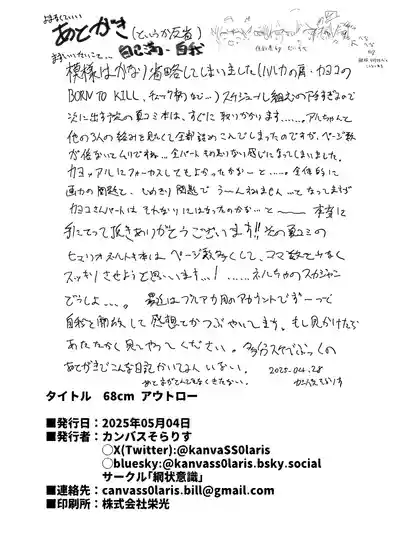 あとがき (というか反省)
自己満・自我
模様はかなり省略してしまいました(ハルカの肩・カヨコの
BORN TO KILL、チェック柄など…)スケジュール組むの下手すぎるので
次に出す予定の夏コミ本は、すぐに取りかかります……。アルちゃんと
他の3人の絡みを見たくて全部詰めこんでしまったのですが、ページ数
が後ないてムリですね…全パートもの足りない感じになってしまいました。
カヨ×アルにフォーカスしてもよかったかな…と……。全体的に
画力の問題と、しめきり問題でう〜んねません…てなってますが
カヨコさんパートはそれなりにはなったのかな…と 本当に
手にとって頂きありがとうございます!!その夏コミの
本は、ページ数多くして、コマ数も少なく
スッキリさせようと思います…!
どうしよ…。最近はブルアカ用のアカウントでずーっと
自我を開放して感想とかつぶやいてます。もし見かけたら
あたたかく見てやってください。多分スケブックの
あとがきでこんな日記かいてる人いない。 2025.04.28
タイトル 68cm アウトロー
■発行日:2025年05月04日
■発行者:カンバスそらりす
〇X(Twitter):@kanvaSS0laris
〇bluesky:@kanvass0laris.bsky.social
サークル「網状意識」
■連絡先:canvass0laris.bill@gmail.com
■印刷所:株式会社栄光